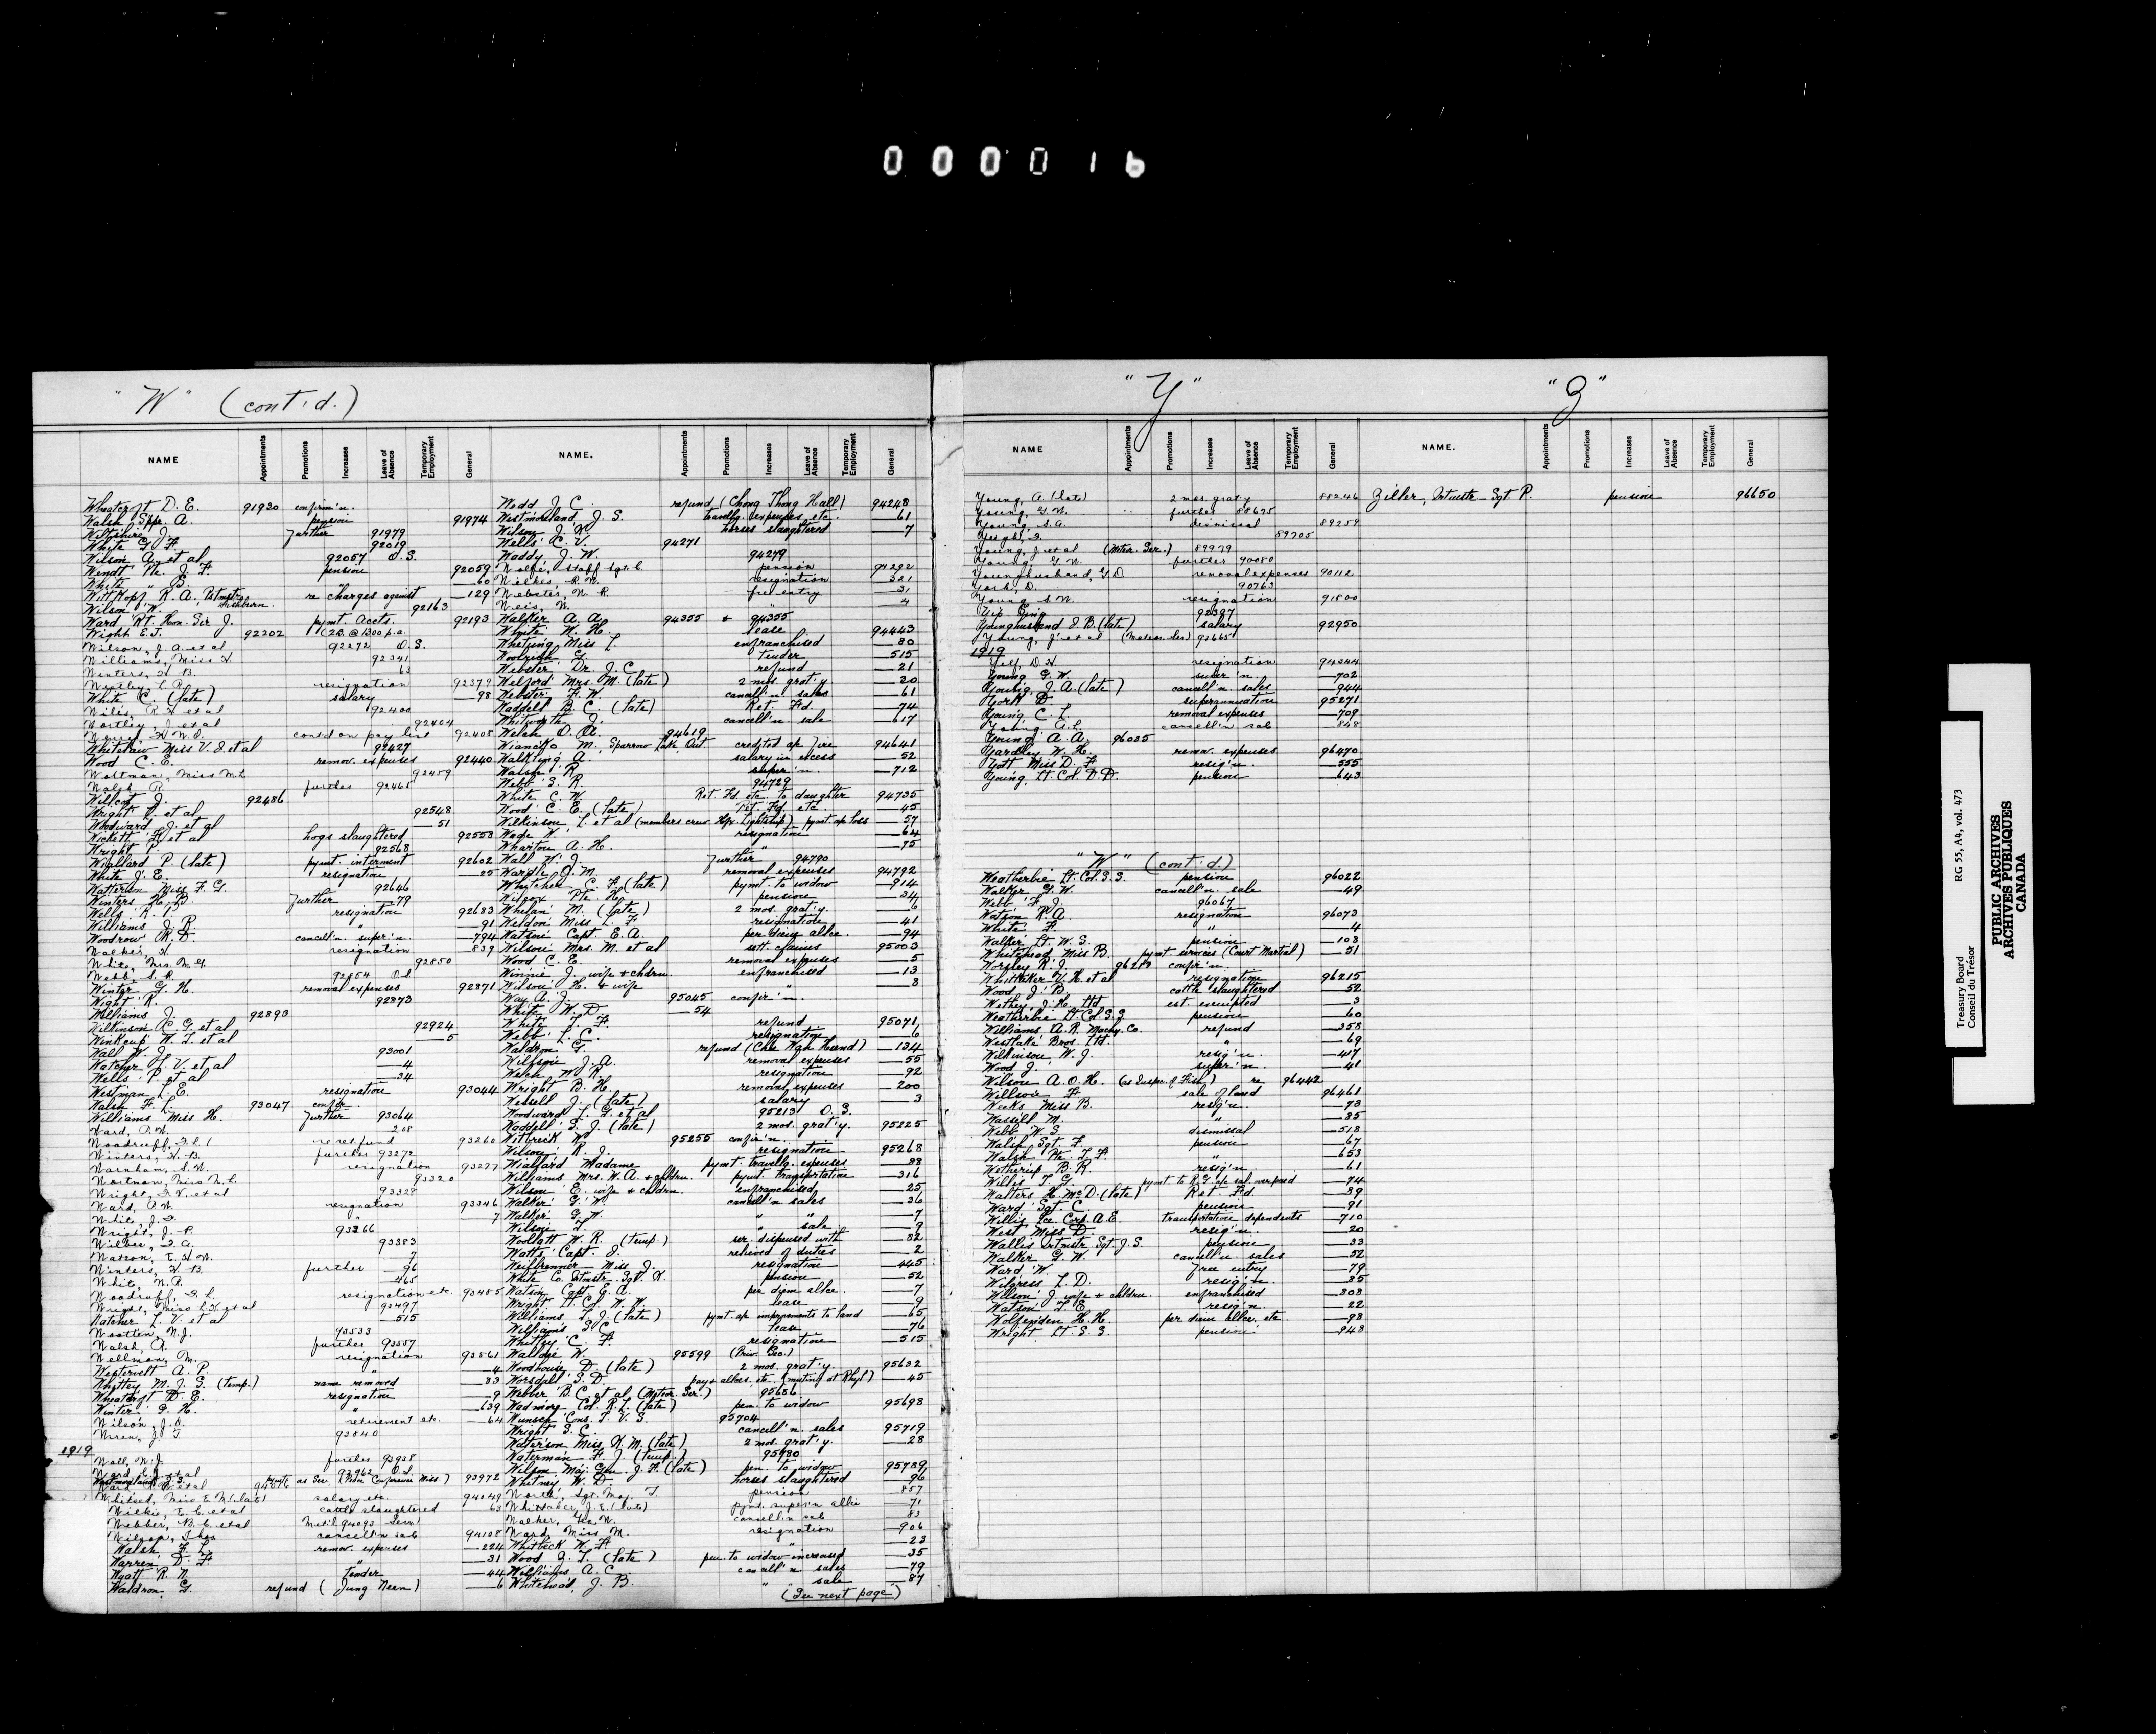 000016
"W" (cont'd.)
NAME Appointments Promotions Increases Leave of Absence Temporary Employment General
Wheatcroft D. E. 91930 confirm'n.
Walsh Spr. A. pension 91974
Wiltshire J. further 91979
White G. F. 92019
Wilson A. et al 92057 O.S.
Wendt Pte. J. F. pension 92059
White " B. " —60
Wittkopf R. A., Pstmstr re charges against —129
Wilson W. 92163
Ward Rt. Hon. Sir J. pymt. accts. 92193
Wight E.J. 92202 (2B @ 1300 p.a.
Wilson, J. A. et al 92272 O.S.
Williams, Miss 92341
Winters, H. B. 63
resignation 92379
White C. (late) salary —98
92400
Wortley, J. et al 92404
cont'd on pay list 92408
Whitelaw Miss V. J. et al 92427
Wood C. E. remov. expenses 92440
Wortman, Miss M. L. 92459
Walsh R. further 92465
Willcox J. 92486
Wright R. et al 92548
Woodward J. et al —51
Wickett F. et al hogs slaughtered 92558
Wright P. 92568
Wiallard P. (late) pymt. interment 92602
White J. E. resignation —25
Watterson Miss F. G. 92646
Winters H. B. further 79
Wells R. P. resignation 92683
Williams J. R. " —91
Woodrow R. D. cancell'n. super'n. —794
Walker, H. resignation 837
White, Mrs. M. 92850
Webb, S. R. 92854 O.S.
Winter G. H. removal expenses 92871
Wight R. 92873
Williams J. 92893
Wilkinson A. G. et al 92924
Winkeup W. J. et al —5
Wall W. J. 93001
Watcher L. V. et al —4
Wells P. et al —34
Westman L. E. resignation 93044
Walsh F. L. 93047 confir.
Williams Miss H. further 93064
Ward, A. W. 208
Woodruff, re ret. fund 93260
Winters, H. B. further 93272
Warnham, S. W. resignation 93277
Wortman, Miss M. L. 93320
Wright, L. V. et al 93328
Ward, A. W. resignation 93346
" 7
Wright, J. P. 93366
93383
Watson, E. H. W. 7
Winters, H. B. further —96
White, N. A. —465
Woodruff, resignation etc. 93485
Wright, Miss et al 93497
Watcher L. V. et al —515
Wootten, N. J. 93533
Walsh, A. further 93557
Wellman, M. resignation 93561
Westervelt A. P. " —4
Whittey M. J. G. (temp.) name removed —83
Wheatcroft D. E. resignation —9
Winter G. H. " —639
Wilson, J. O. retirement etc. 64
Wren, J. T. 93840
1919
Wall, W. J. further 93938
Ward, E. J. et al 93962 O.S.
Whitsed, Miss E. M. (late) salary etc. 94049
Wilkie, E. C. et al cattle slaughtered 63
Webber, B. C. et al Met'l 94093 Serv.
cancell'n sale 94108
Walsh, F. L. remov. expenses —224
Warren D. F. " —31
Wyatt R. N. tender —44
Waldron, G. refund (Jung Neen) —6
NAME. Appointments Promotions Increases Leave of Absence Temporary Employment General
Wedd J. C. refund (Chong Thong Hall) 94248
Westmoreland J. S. travellg. expenses etc. —61
Wilson J. K. horses slaughtered —7
Wells C. V. 94271
Waddy J. W. 94279
Wolfe, Staff Sgt. C. pension 94292
Wilkes R. W. resignation 321
Webster, W. R. free entry 31
Weis, W. " 4
Walker A. A. 94355 & 94355
White W. H. lease 94443
Whetung Miss L. enfranchised —80
Woolrich G. tender —515
Webster Dr. J. C. refund —21
Welford Mrs. M. (late) 2 mos. grat'y —20
Webster F. W. cancell'n. sales —61
Waddell B. C. (late) Ret. Fd. —74
Whitworth J. cancell'n. sale —617
Welch O. A. 94619
Wianco M., Sparrow Lake Ont. credited a/c Fire 94641
Walkling A. salary in excess —52
Walsh R. super'n. —712
Webb S. R. 94729
White C. W. Ret. Fd. etc. to daughter 94735
Wood C. E. (late) Ret. Fd. etc. —45
Wilkinson L. et al (members crew Hfx. Lightship) pymt. a/c loss —57
Wade K. resignation —64
Wharton A. H. " —75
Wall W. J. further 94790
Wardle J. M. removal expenses 94792
Whitcher C. F. (late) pymt. to widow —914
Wilcox Pte. H. pension —34
Whelan M. (late) 2 mos. grat'y. —6
Weldon Miss L. F. resignation —41
Watson Capt. E. A. per diem allce. —94
Wilson Mrs. M. et al sett. claims 95003
Wood C. E. removal expenses —5
Winnie J. wife + chldrn. enfranchised —13
Wilson H. & wife " —8
Way A. J. 95045 confir'n.
White W. D. —54
White T. F. refund 95071
Webb L. C. resignation —6
Waldron G. refund (Chu Wah Heend) —134
Willson J. A. removal expenses —55
Welch W. R. resignation —92
Wright B. H. removal expenses —200
Wessell J. (late) salary —3
Woodward L. G. et al 95213 O.S.
Waddell S. J. (late) 2 mos. grat'y. 95225
Witbreik W. 95255 confir'n.
Wilson R. J. resignation 95268
Wiallard Madame pymt. travellg. expenses —88
Williams Mrs. W. A. + chldrn. pymt. transportation —316
Wilson E. wife + chldrn. enfranchised —25
Walker G. W. cancell'n sales —36
Walker G. W. " " —7
Wilson T. " sale —9
Woollatt W. R. (temp.) ser. dispensed with —82
Watts Capt. J. relieved of duties —2
Weilbrenner Miss J. resignation —445
White Co. Qtmstr. Sgt. H. pension —52
Watson Capt. E. A. per diem allce. —7
Wright Lt. Col. W. W. lease —9
Williams T. J. (late) pymt. a/c improvements to land —65
Williams S. C. lease —76
Whitley C. F. resignation —515
Wallage W. 95599 (Priv. Sec.)
Woodhouse D. (late) 2 mos. grat'y. 95632
Worsdell S. D. pay + allces. etc. (mutiny at Rhyl) —45
Webber B. C. et al (Meteor. Ser.) 95686
Wadmore Col. R. L. (late) pen. to widow 95698
Wunsch Cons. T. V. S. 95704
Wright S. C. cancell'n. sales 95719
Waterson Miss K. M. (late) 2 mos. grat'y. —28
Waterman F. J. (temp.) 95780
Wilson Maj. Gen. J. F. (late) pen. to widow 95789
Whitney W. D. horses slaughtered —96
Worth, Sgt. Maj. T. pension 857
Whittaker, J. E. (late) pymt. super'n allce 71
Walker, Geo. W. cancell'n sale 83
Ward, Miss M. resignation —906
Whitbeck W. F. " —23
Wood J. T. (late) pen. to widow increased —35
Williams A. C. cancell'n sales —79
Whitewood, J. B. " sale —87
(See next page)
"Y"
NAME Appointments Promotions Increases Leave of Absence Temporary Employment General
Young, A. (late) 2 mos. grat'y 88246
Young, G. W. further 88675
Young, S. A. dismissal 89259
89705
Young, J. et al (Meteor. Ser.) 89979
Young, G. W. further 90080
Younghusband, G. D. removal expenses 90112
York, D. 90763
Young S. W. resignation 91800
Yip Sing 92397
Younghusband J. B. (late) salary 92950
Young, J. et al (Meteor. Ser.) 93665
1919
Yelf, D. H. resignation 94344
Young G. W. super'n. —702
Young, J. A. (late) cancell'n sales —944
York D. superannuation 95271
Young, C. L. removal expenses —709
Young, A. L. cancell'n sale 848
Young A. A. 96035
Yardley W. H. remov. expenses 96470
Yott Miss D. F. resig'n. —555
Young, Lt. Col. D. D. pension —643
"W" (cont'd.)
Weatherbie Lt. Col. S. S. pension 96022
Walker G. W. cancell'n. sale —49
Webb F. J. 96067
Watson R. A. resignation 96073
White F. " —4
Walker Lt. W. S. pension —108
Whitehead Miss B. pymt services (Court Martial) —51
Worsley R. J. 96210 confir'n.
Whittaker V. H. et al resignation 96215
Wood J. B. cattle slaughtered —52
Wethey, J. H. Ltd. est. exempted —3
Weatherbie Lt. Col. S. S. pension —60
Williams A. R. Machy. Co. refund —358
Westlake Bros. Ltd. " —69
Wilkinson W. J. resig'n. —417
Wood J. super'n. —41
Wilson A. O. H. (as Inspr. of Fish.) re 96442
Willson H. sale of land 96461
Weeks Miss B. resig'n. —73
Wassill M. " —85
Webb W. S. dismissal —518
Walsh Sgt. F. pension —67
Walsh Pte. T. F. " —653
Wotherup B. R. resig'n. —61
Willis T. G. pymt to R.G. a/c sal. overpaid —74
Walters H. McD. (late) Ret. Fd. —89
Ward Sgt. C. pension —91
Willis Lce. Corp. A. E. transportation dependents —710
West Miss D. resig'n. —20
Wallis Qrtmstr. Sgt. J. S. pension —33
Walker G. W. cancell'n sales —52
Ward W. free entry —79
Wilgress L. D. resig'n. —85
Wilson J. wife + chldrn. enfranchised —808
Watson T. E. resig'n. —22
Wolfenden H. H. per diem allce. etc —93
Wright Lt. S. S. pension —948
"Z"
NAME. Appointments Promotions Increases Leave of Absence Temporary Employment General
Ziller, Qrtmstr Sgt P. pension 96650
Treasury Board RG 55, A4, vol. 473
Conseil du Trésor
PUBLIC ARCHIVES
ARCHIVES PUBLIQUES
CANADA